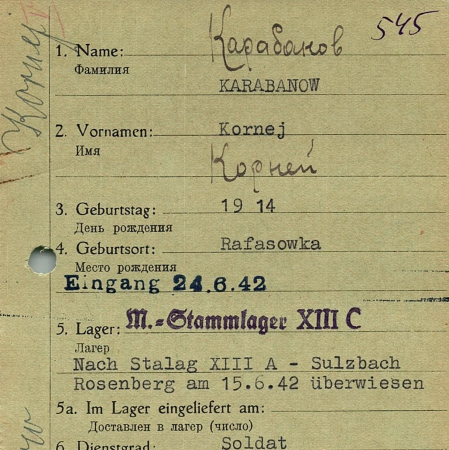 Kornej
545
Карабанов
1. Name:
Фамилия
KARABANOW
2. Vornamen: Kornej
Имя
Корней
3. Geburtstag: 19 14
День рождения
4. Geburtsort: Rafasowka
Место рождения
Eingang 24.6.42
5. Lager: M.-Stammlager XIII C
Лагер
Nach Stalag XIII A - Sulzbach
Rosenberg am 15.6.42 überwiesen
5a. Im Lager eingeliefert am:
Доставлен в лагер (число)
6. Dienstgrad: Soldat